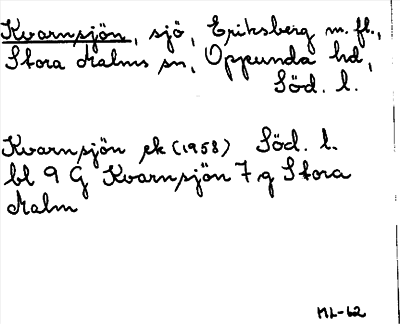 Kvarnsjön, sjö, Eriksberg m. fl.,
Stora Malms sn, Oppunda hd,
Söd. l.
Kvarnsjön ek (1958) Söd. l.
bl 9 G Kvarnsjön 7 g Stora
Malm
ML-62